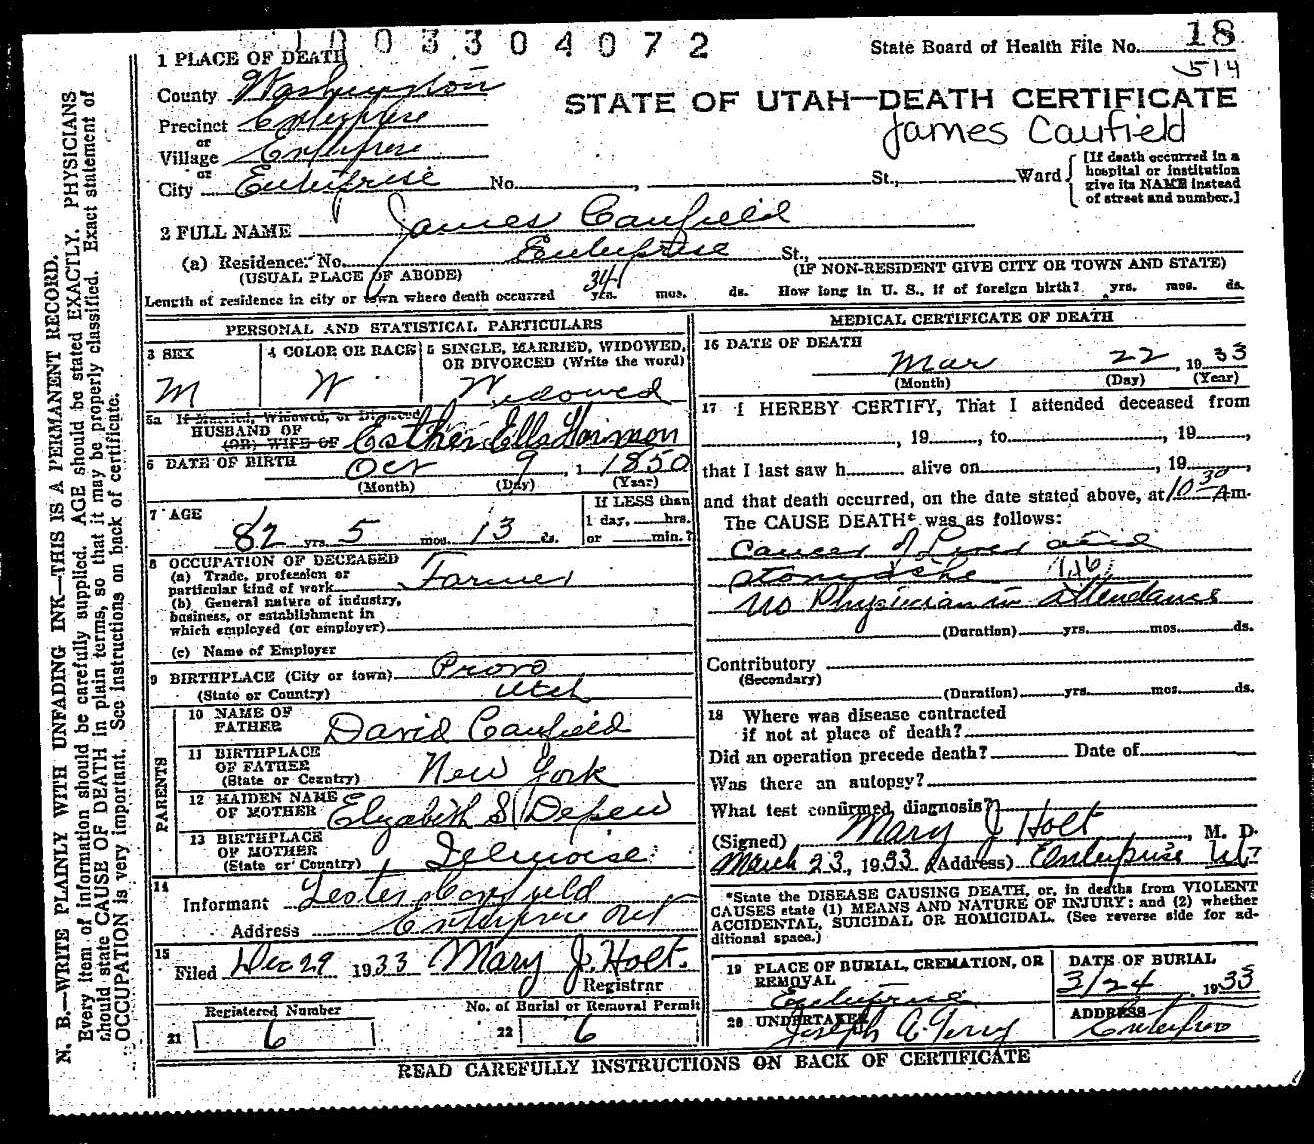 1003304072
State Board of Health File No. 18
514
STATE OF UTAH—DEATH CERTIFICATE
James Caufield
1 PLACE OF DEATH
County Washington
Precinct Enterprise
or
Village Enterprise
or
City Enterprise No. , St., Ward
[If death occurred in a
hospital or institution
give its NAME instead
of street and number.]
2 FULL NAME James Caufield
(a) Residence: No. Enterprise St.,
(USUAL PLACE OF ABODE) (IF NON-RESIDENT GIVE CITY OR TOWN AND STATE)
Length of residence in city or town where death occurred 34 yrs. mos. ds. How long in U. S., if of foreign birth? yrs. mos. ds.
PERSONAL AND STATISTICAL PARTICULARS
3 SEX
M
4 COLOR OR RACE
W
5 SINGLE, MARRIED, WIDOWED,
OR DIVORCED (Write the word)
Widowed
5a If Married, Widowed, or Divorced
HUSBAND OF
(OR) WIFE OF Esther Ells
6 DATE OF BIRTH Oct 9, 1 1850
(Month) (Day) (Year)
7 AGE
82 yrs. 5 mos. 13 ds.
If LESS than
1 day, hrs.
or min.?
8 OCCUPATION OF DECEASED
(a) Trade, profession or
particular kind of work Farmer
(b) General nature of industry,
business, or establishment in
which employed (or employer)
(c) Name of Employer
9 BIRTHPLACE (City or town) Provo
(State or Country) Utah
PARENTS
10 NAME OF
FATHER David Caufield
11 BIRTHPLACE
OF FATHER
(State or Country) New York
12 MAIDEN NAME
OF MOTHER Elizabeth S Depew
13 BIRTHPLACE
OF MOTHER
(State or Country) Illenoise
14
Informant Lester Caufield
Address Enterprise Ut
15
Filed Dec 29 1933 Mary J. Holt.
Registrar
Registered Number
21 6
No. of Burial or Removal Permit
22 6
MEDICAL CERTIFICATE OF DEATH
16 DATE OF DEATH
Mar 22, 1933
(Month) (Day) (Year)
17 I HEREBY CERTIFY, That I attended deceased from
, 19 , to , 19 ,
that I last saw h alive on , 19 ,
and that death occurred, on the date stated above, at 10 30 Am.
The CAUSE DEATH* was as follows:
Cancer of Liver and
116
No Physician in Attendance
(Duration) yrs. mos. ds.
Contributory
(Secondary)
(Duration) yrs. mos. ds.
18 Where was disease contracted
if not at place of death?
Did an operation precede death? Date of
Was there an autopsy?
What test confirmed diagnosis?
(Signed) Mary J Holt, M. D.
March 23, 1933 (Address) Enterprise Ut
*State the DISEASE CAUSING DEATH, or, in deaths from VIOLENT
CAUSES state (1) MEANS AND NATURE OF INJURY: and (2) whether
ACCIDENTAL, SUICIDAL OR HOMICIDAL. (See reverse side for ad-
ditional space.)
19 PLACE OF BURIAL, CREMATION, OR
REMOVAL
Enterprise
DATE OF BURIAL
3/24 1933
20 UNDERTAKER
Joseph A. Terry
ADDRESS
READ CAREFULLY INSTRUCTIONS ON BACK OF CERTIFICATE
N. B.—WRITE PLAINLY WITH UNFADING INK—THIS IS A PERMANENT RECORD.
Every item of information should be carefully supplied. AGE should be stated EXACTLY. PHYSICIANS
should state CAUSE OF DEATH in plain terms, so that it may be properly classified. Exact statement of
OCCUPATION is very important. See instructions on back of certificate.